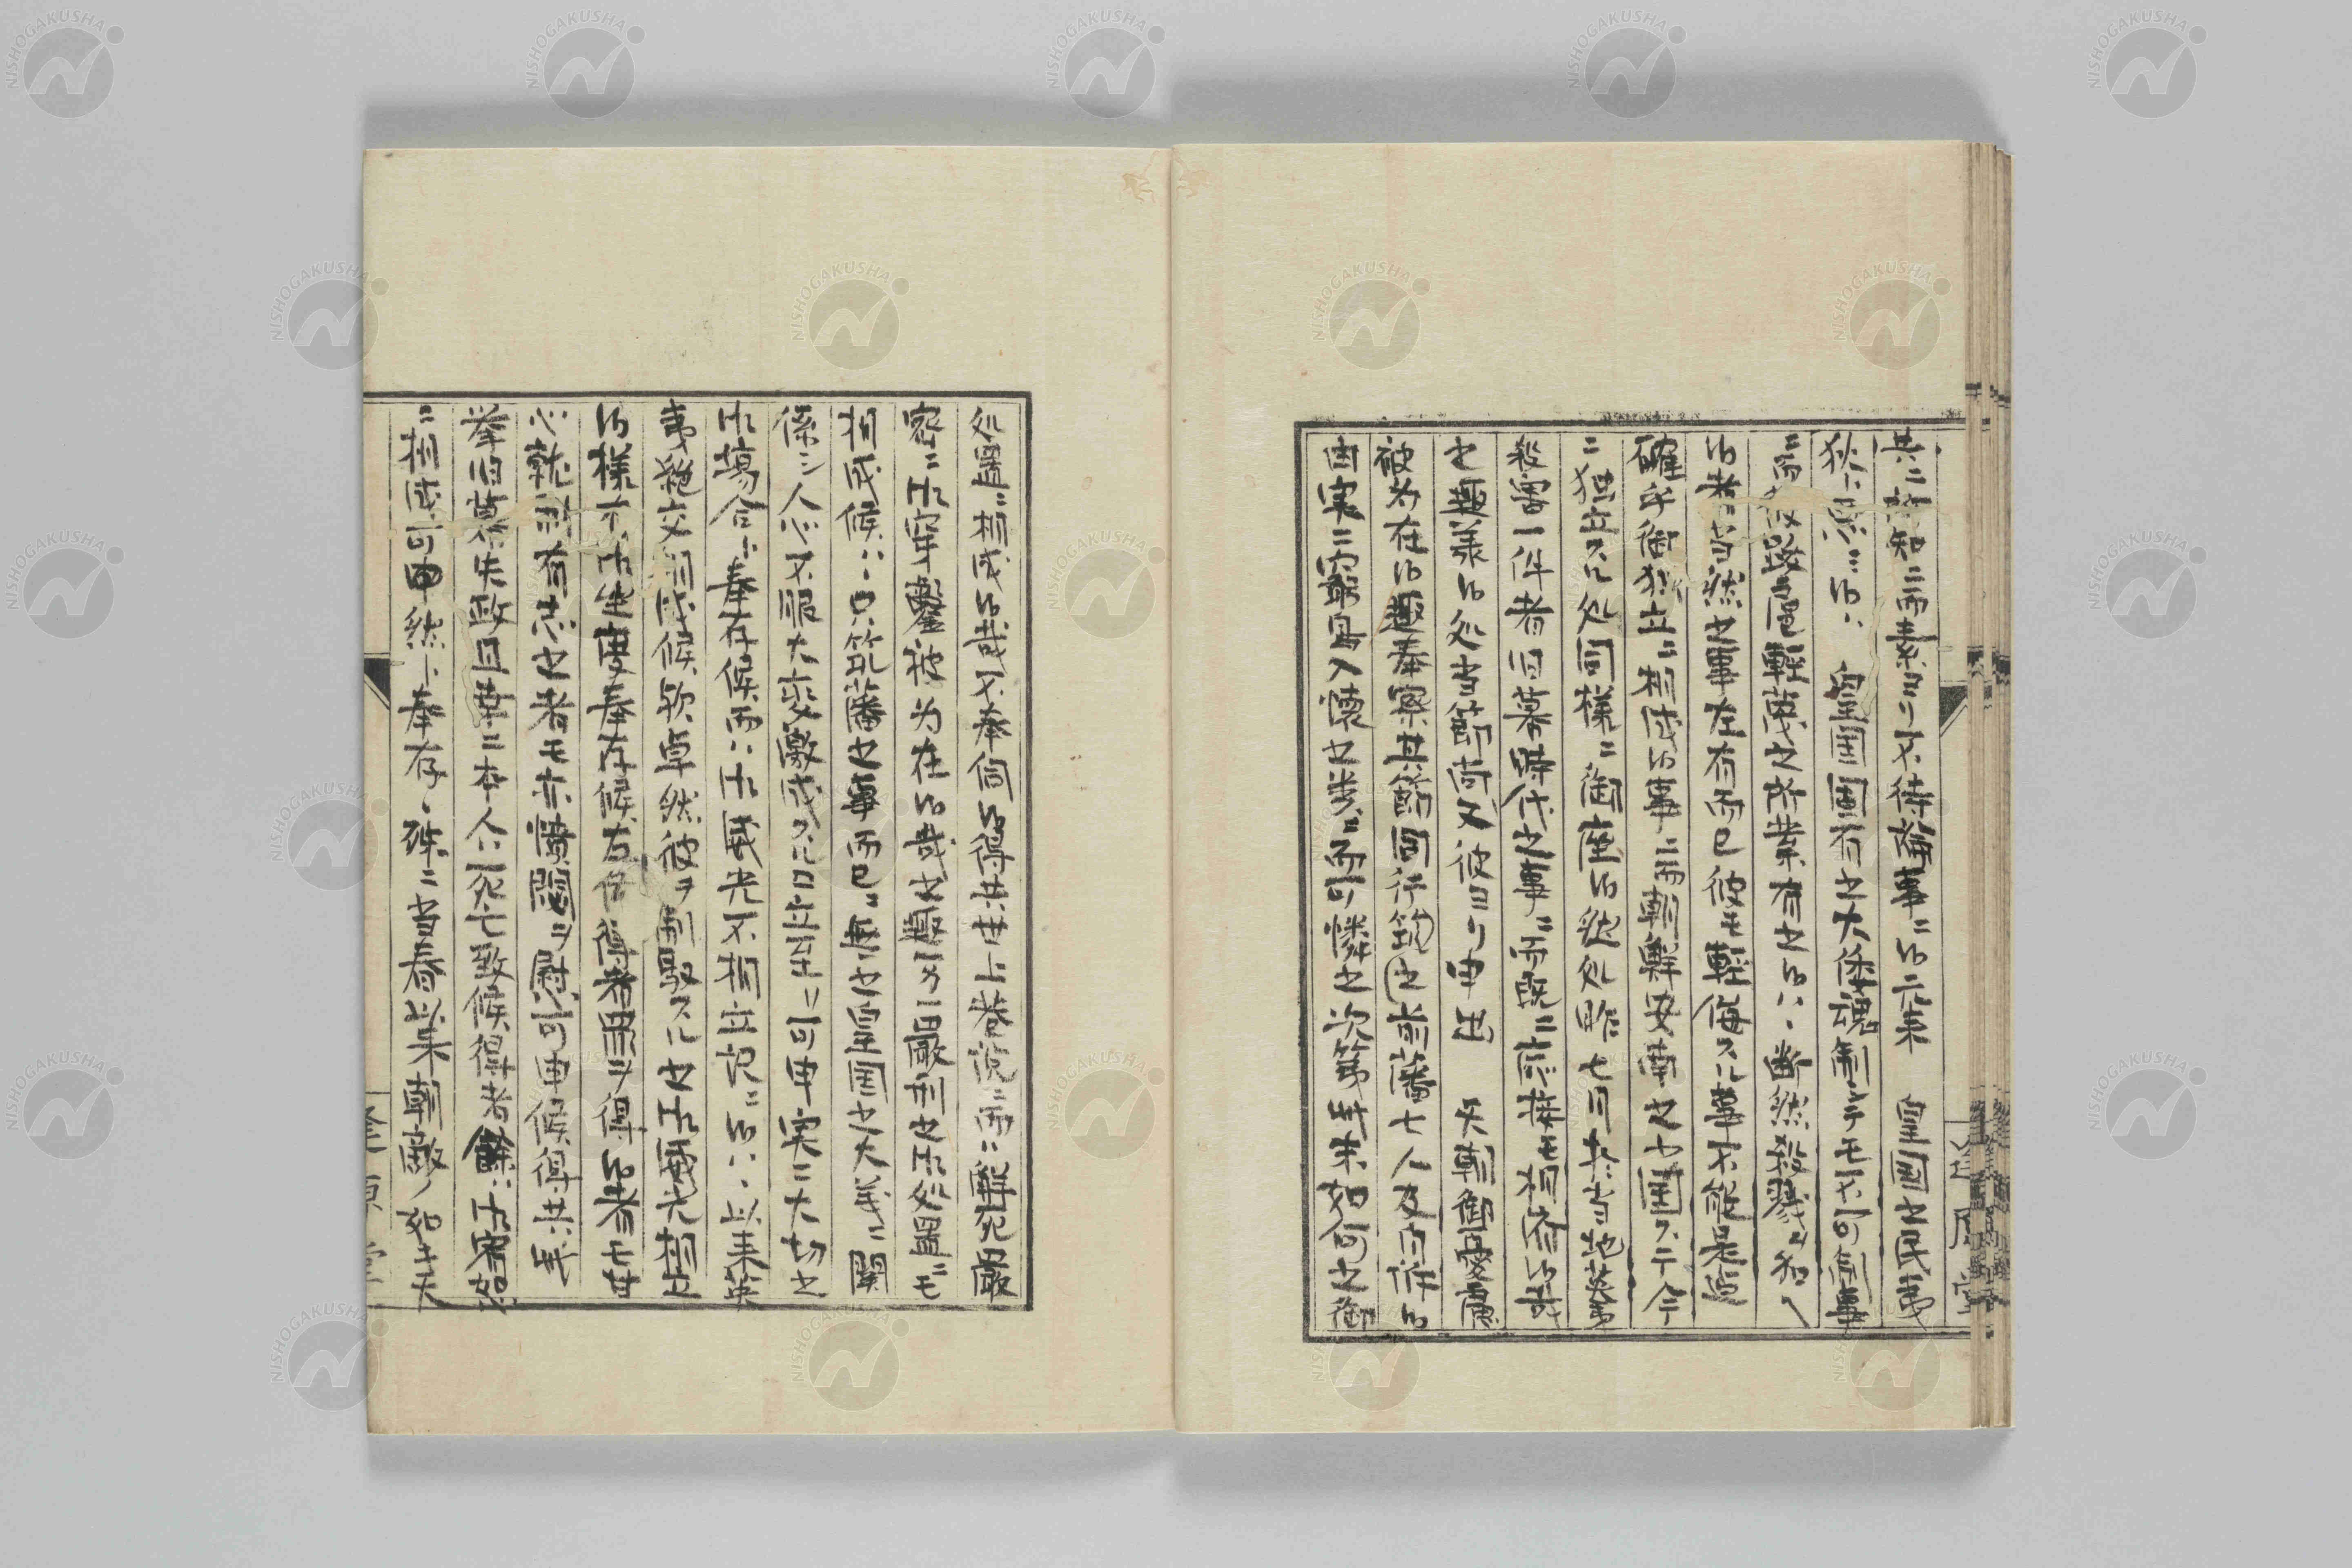 共ニ所知ニ而素ヨリ不待論事ニ候元来　皇国之民夷
狄ヲ悪ニ候ハ　皇国固有之大倭魂制シテモ不可制事
ニ而彼跋扈軽蔑之所業有之候ハヽ断然殺戮ヲ加ヘ
候者当然之事在有而已彼モ軽侮スル事不能是迄
確乎御独立ニ相成候事ニ而朝鮮安南之小国スニ今
ニ独立スル処同様ニ御座候然処昨七月於当地英弟
殺害一件者旧幕時代之事ニ而既ニ応接モ相済候哉
之趣承候処当節尚又彼ヨリ申出　天朝御憂慮
被為在候趣奉察其節同行筑之前藩七人及内伴候
由実ニ窮鳥入懐之類ニ而可憐之次第此末如何之御
処置ニ相成候哉不奉伺候得共世上巷説ニ而ハ解死厳
密ニ御穿鑿被為在候哉之趣万一厳刑之御処置ニモ
相成候ハヽ只筑藩之事而已ニ無之皇国之大義ニ関
係シ人心不服大変激成スル日立至リ可申実ニ大切之
御場合ト奉存候而ハ御威光不相立訳ニ候ハヽ以来英
夷絶交相成候歟卓然彼ヲ制馭スル之御威光相立
候様不御坐度奉存候右 得者罪ヲ得候者モ甘
心就刑有志之者モ亦憤悶ヲ慰可申候得共此
挙旧幕失政且其ニ本人ハ死亡致候得者餘ハ御宥恕
ニ相成可申然ト奉存候殊ニ当春以来朝敵ノ如キ天